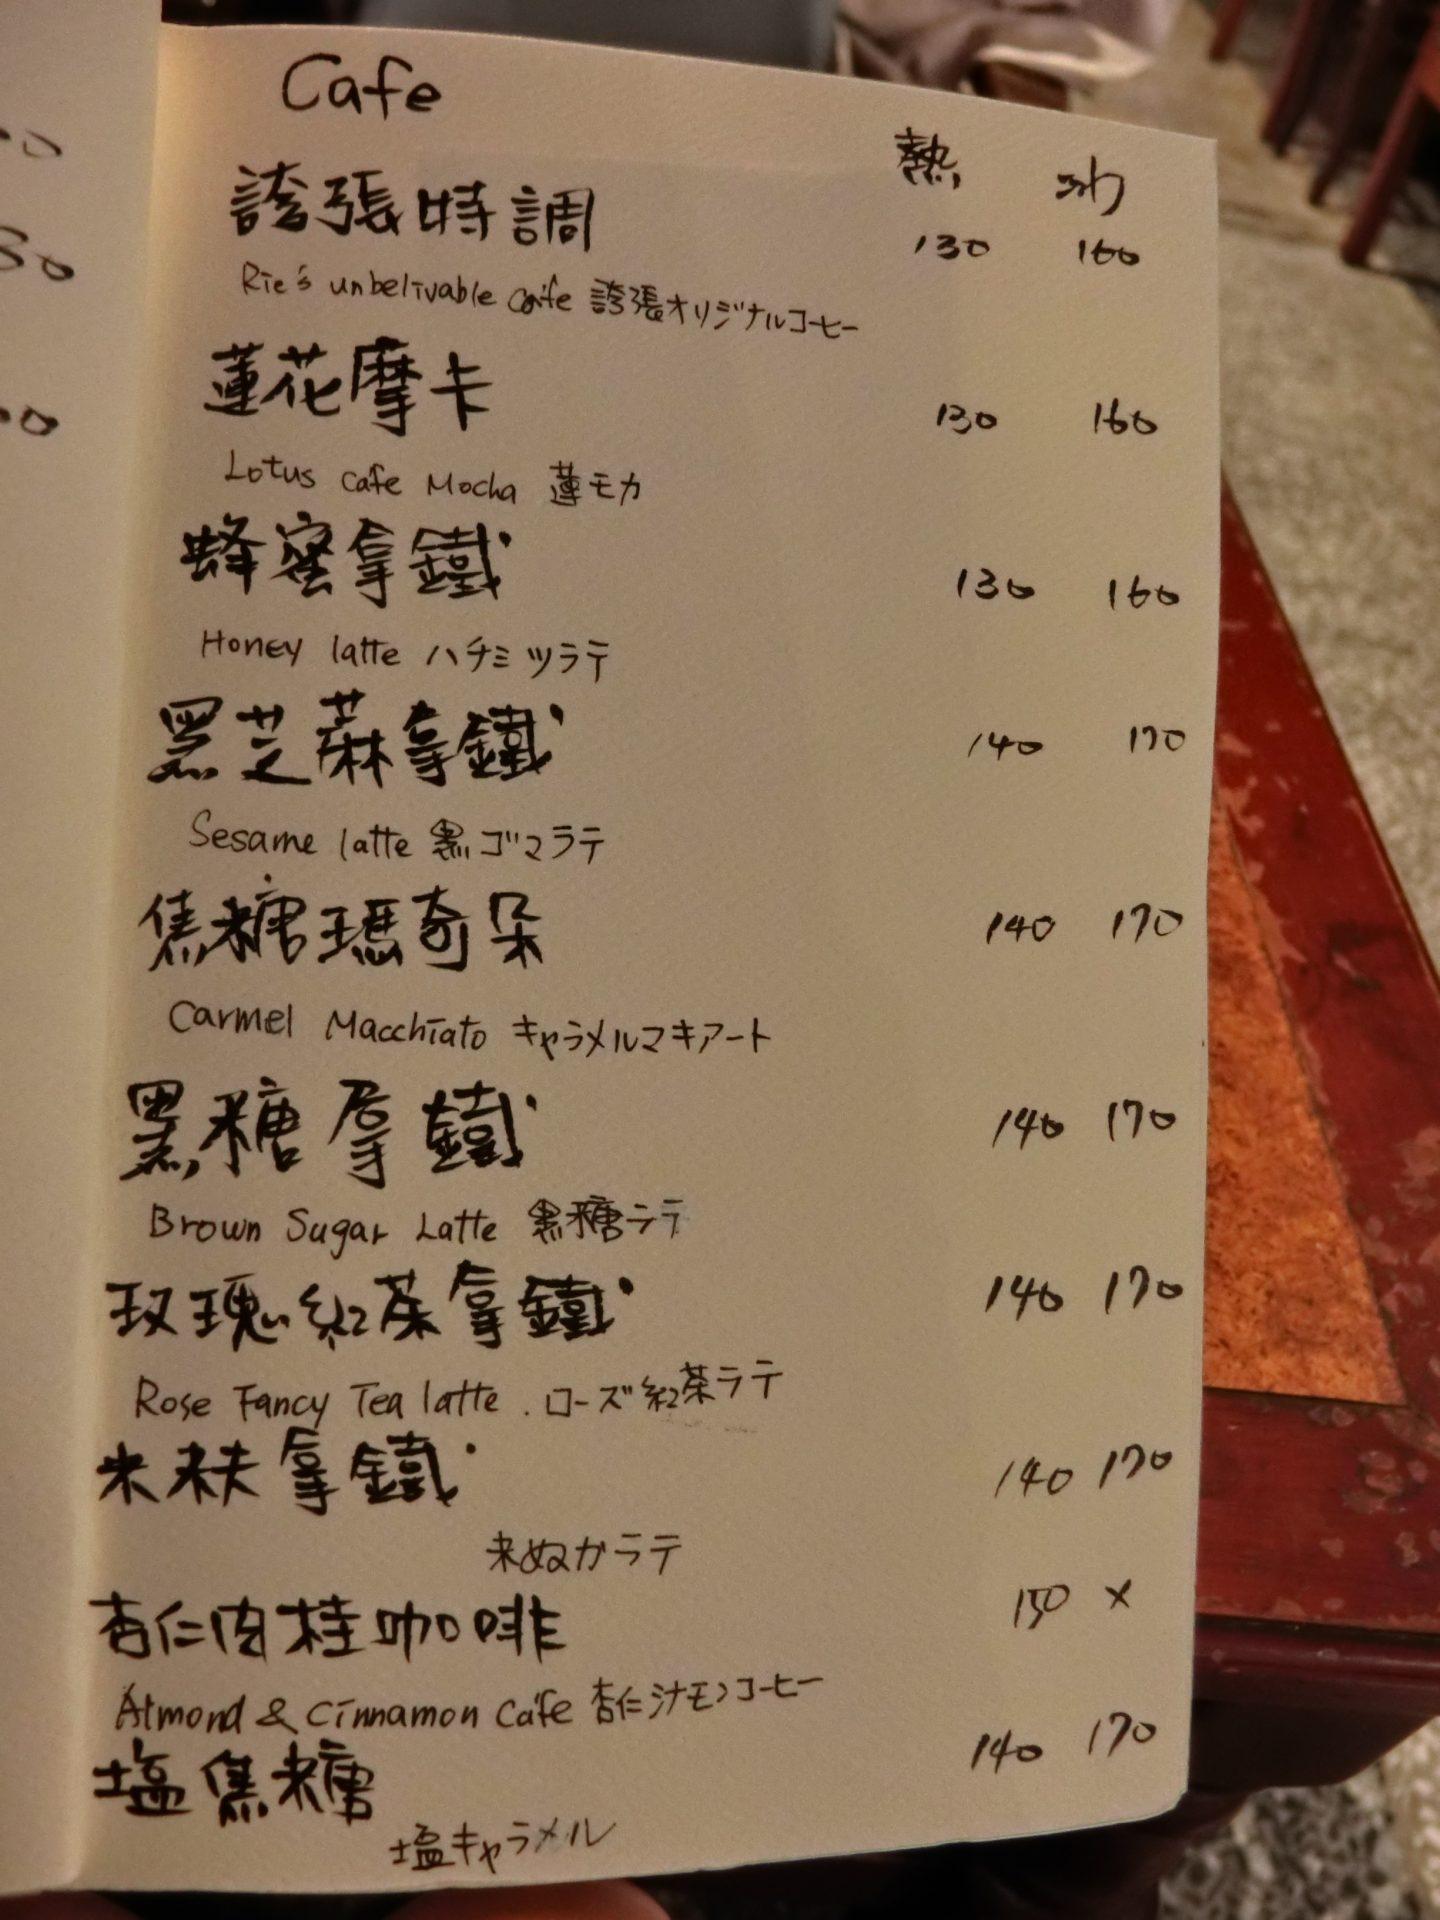 Cafe
熱 冰
誇張特調 130 160
Rie's unbelivable cafe 誇張オリジナルコーヒー
蓮花摩卡 130 160
Lotus cafe Mocha 蓮モカ
蜂蜜拿鐵 130 160
Honey latte ハチミツラテ
黑芝蔴拿鐵 140 170
Sesame latte 黒ゴマラテ
焦糖瑪奇朵 140 170
Carmel Macchiato キャラメルマキアート
黑糖拿鐵 140 170
Brown Sugar Latte 黒糖ラテ
玫瑰紅茶拿鐵 140 170
Rose Fancy Tea latte . ローズ紅茶ラテ
米麸拿鐵 140 170
米ぬかラテ
杏仁肉桂咖啡 150 x
Almond & Cinnamon Cafe 杏仁シナモンコーヒー
塩焦糖 140 170
塩キャラメル